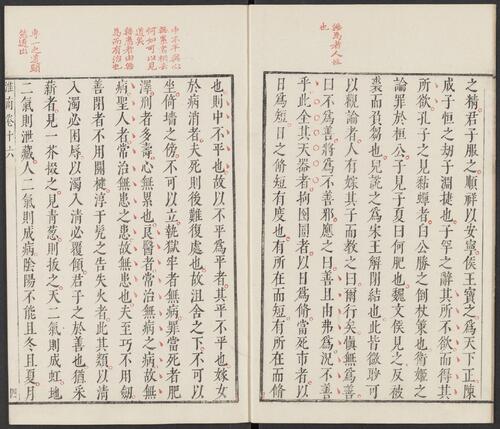 之精君子服之順祥以安寧侯王寶之為天下正陳
成子恒之劫子淵捷也子罕之辭其所不欲而得其
所欲孔子之見黏蟬者白公勝之倒杖策也衛姬之
論罪於桓公子見子夏曰何肥也魏文侯見之反被
裘而負芻也兒說之為宋王解閉結也此皆微眇可
以觀論者人有嫁其子而教之曰爾行矣慎無為善
曰不為善將為不善邪應之曰善且由弗為況不善
乎此全其天器者拘囹圄者以日為脩當死市者以
日為短日之脩短有度也有所在而短有所在而脩
中不平與心
無累者相去
何如可以見
道矣
也則中不平也故以不平為平者其平不平也嫁女
於病消者夫死則後難復處也故沮舍之下不可以
坐倚墻之傍不可以立執獄牢者無病罪當死者肥
澤刑者多壽心無累也良醫者常治無病之病故無
病聖人者常治無患之患故無患也夫至巧不用劒
善閉者不用關楗淳于髡之告失火者此其類以清
入濁必困辱以濁入清必覆傾君子之於善也猶采
薪者見一芥掇之見青葱則拔之天二氣則成虹地
二氣則泄藏人二氣則成病陰陽不能且冬且夏月
淮南卷十六
四